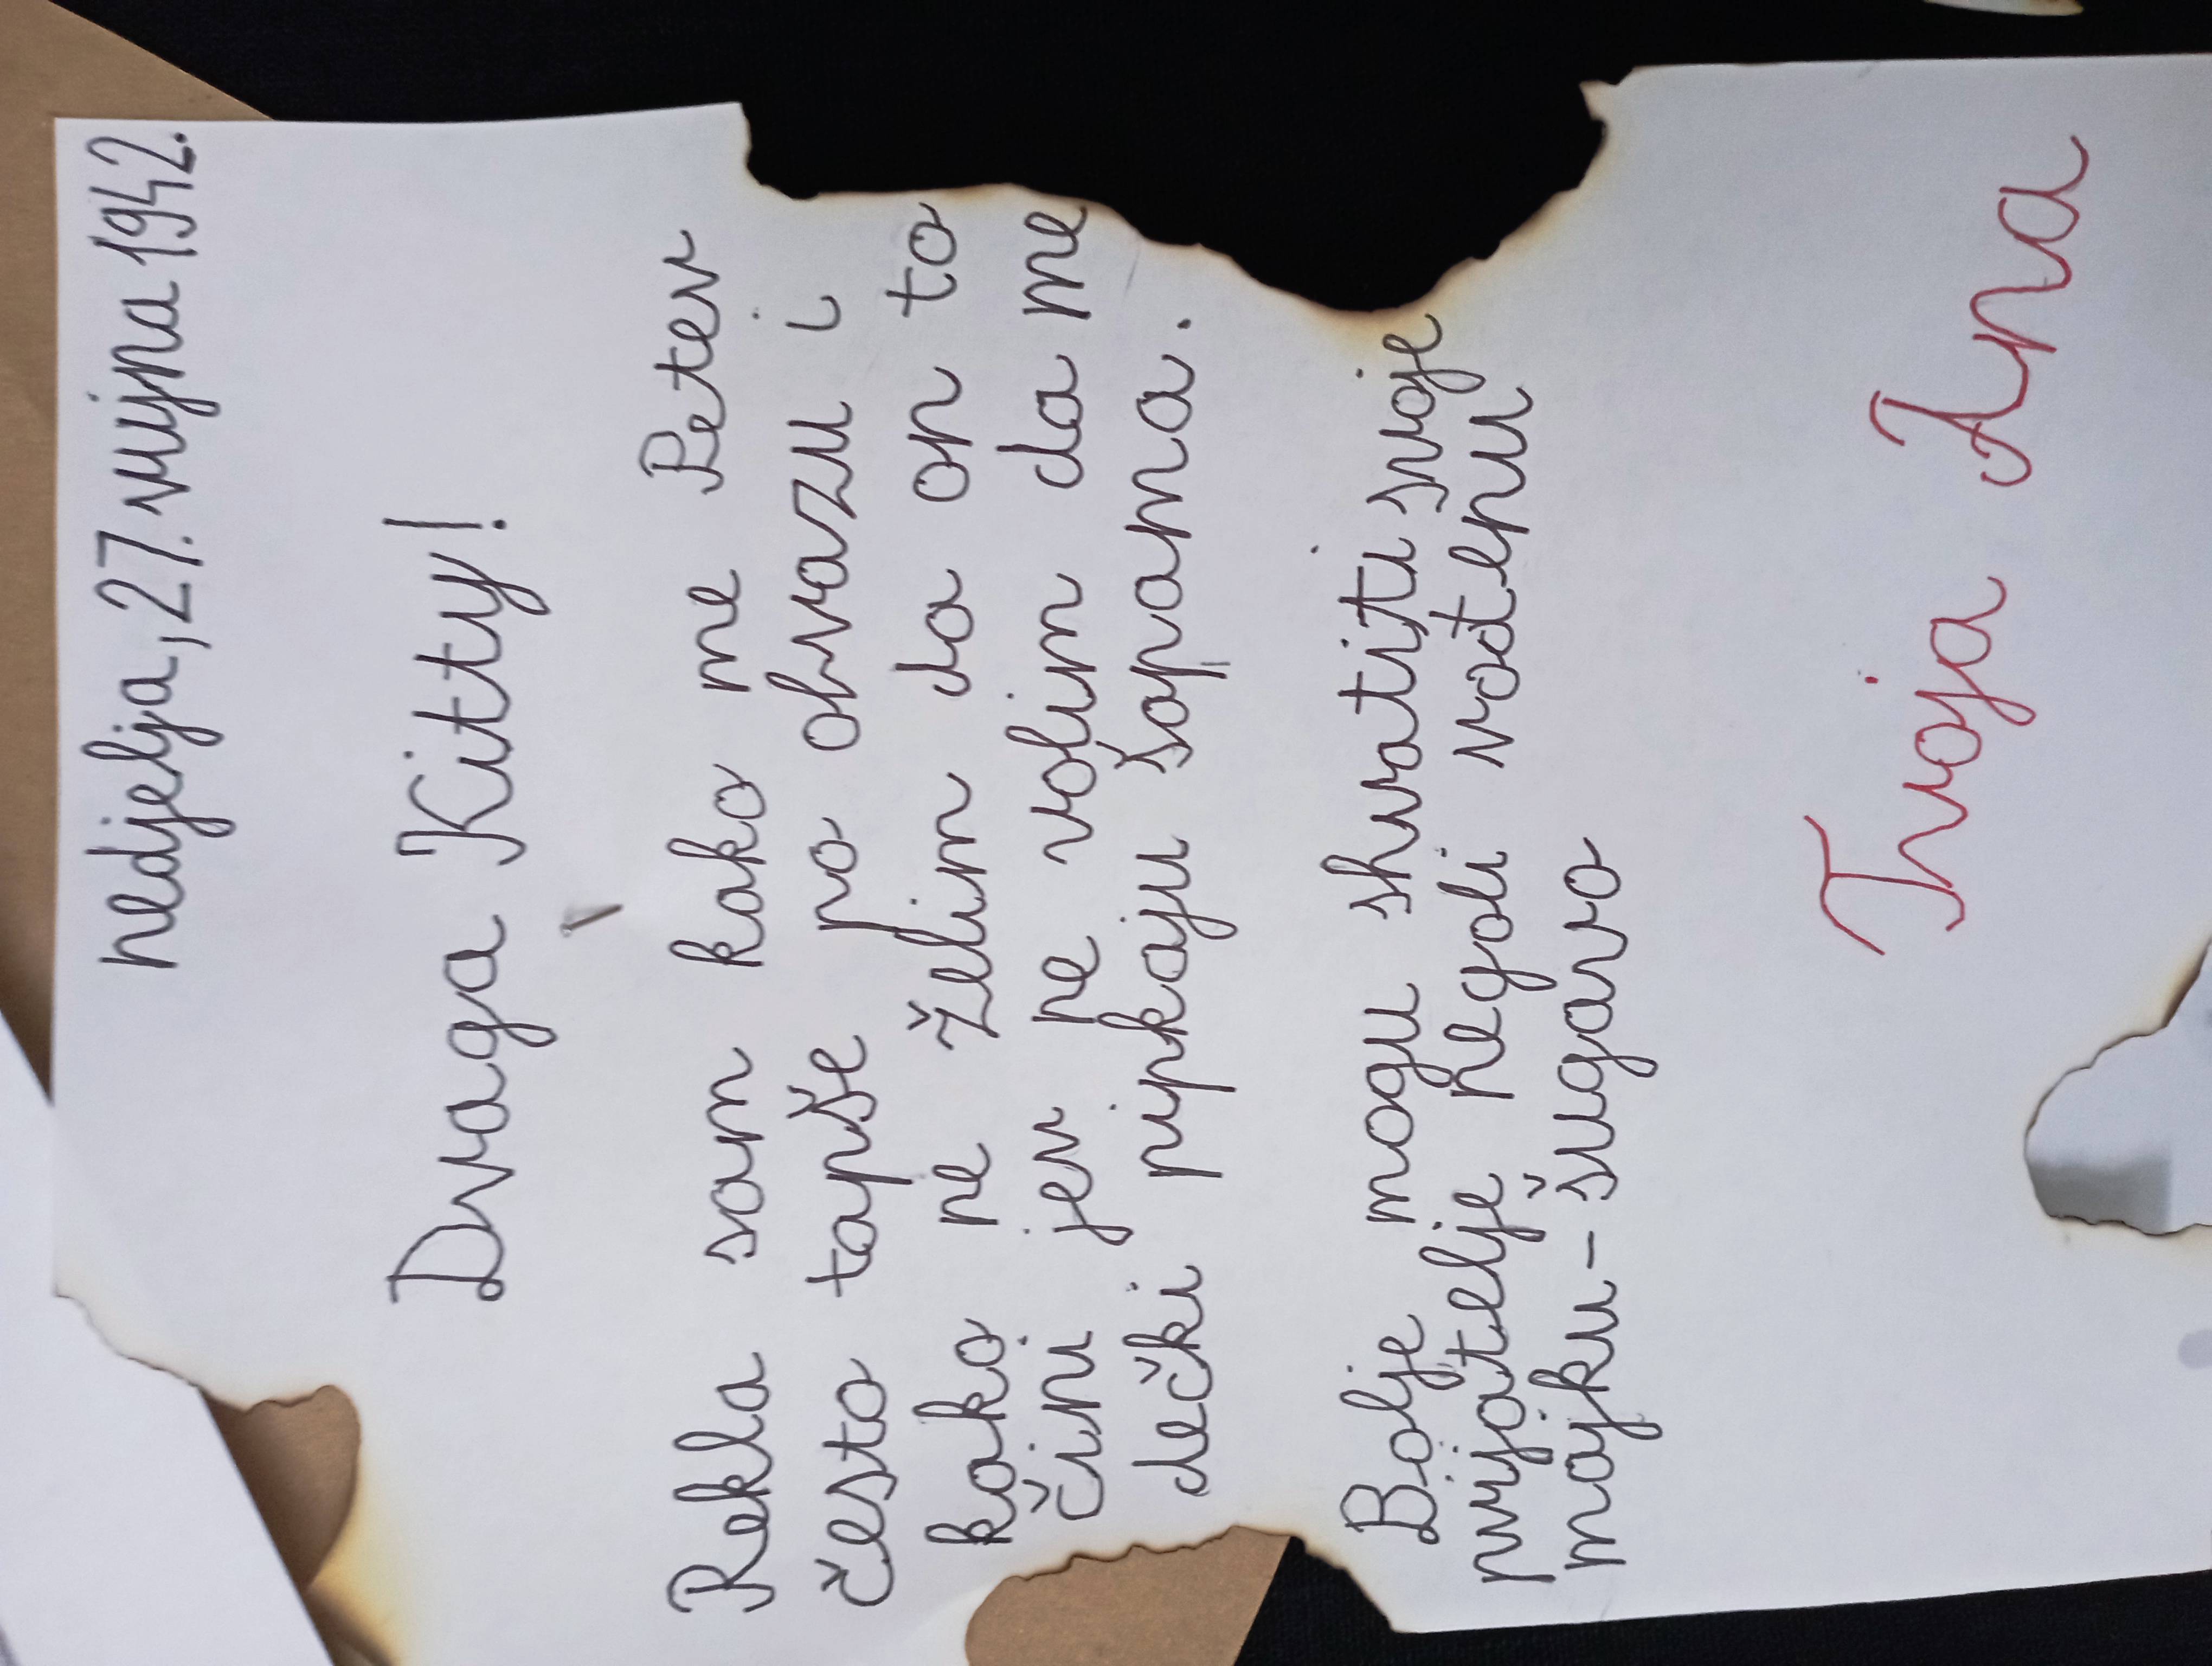 nedjelja, 27. rujna 1942.
Draga Kitty!
Rekla sam kako me Peter
često tapše po obrazu i
kako ne želim da on to
čini jer ne volim da me
dečki pipkaju šapama.
Bolje mogu shvatiti svoje
prijatelje negoli rođenu
majku - šugavo
Tvoja Ana